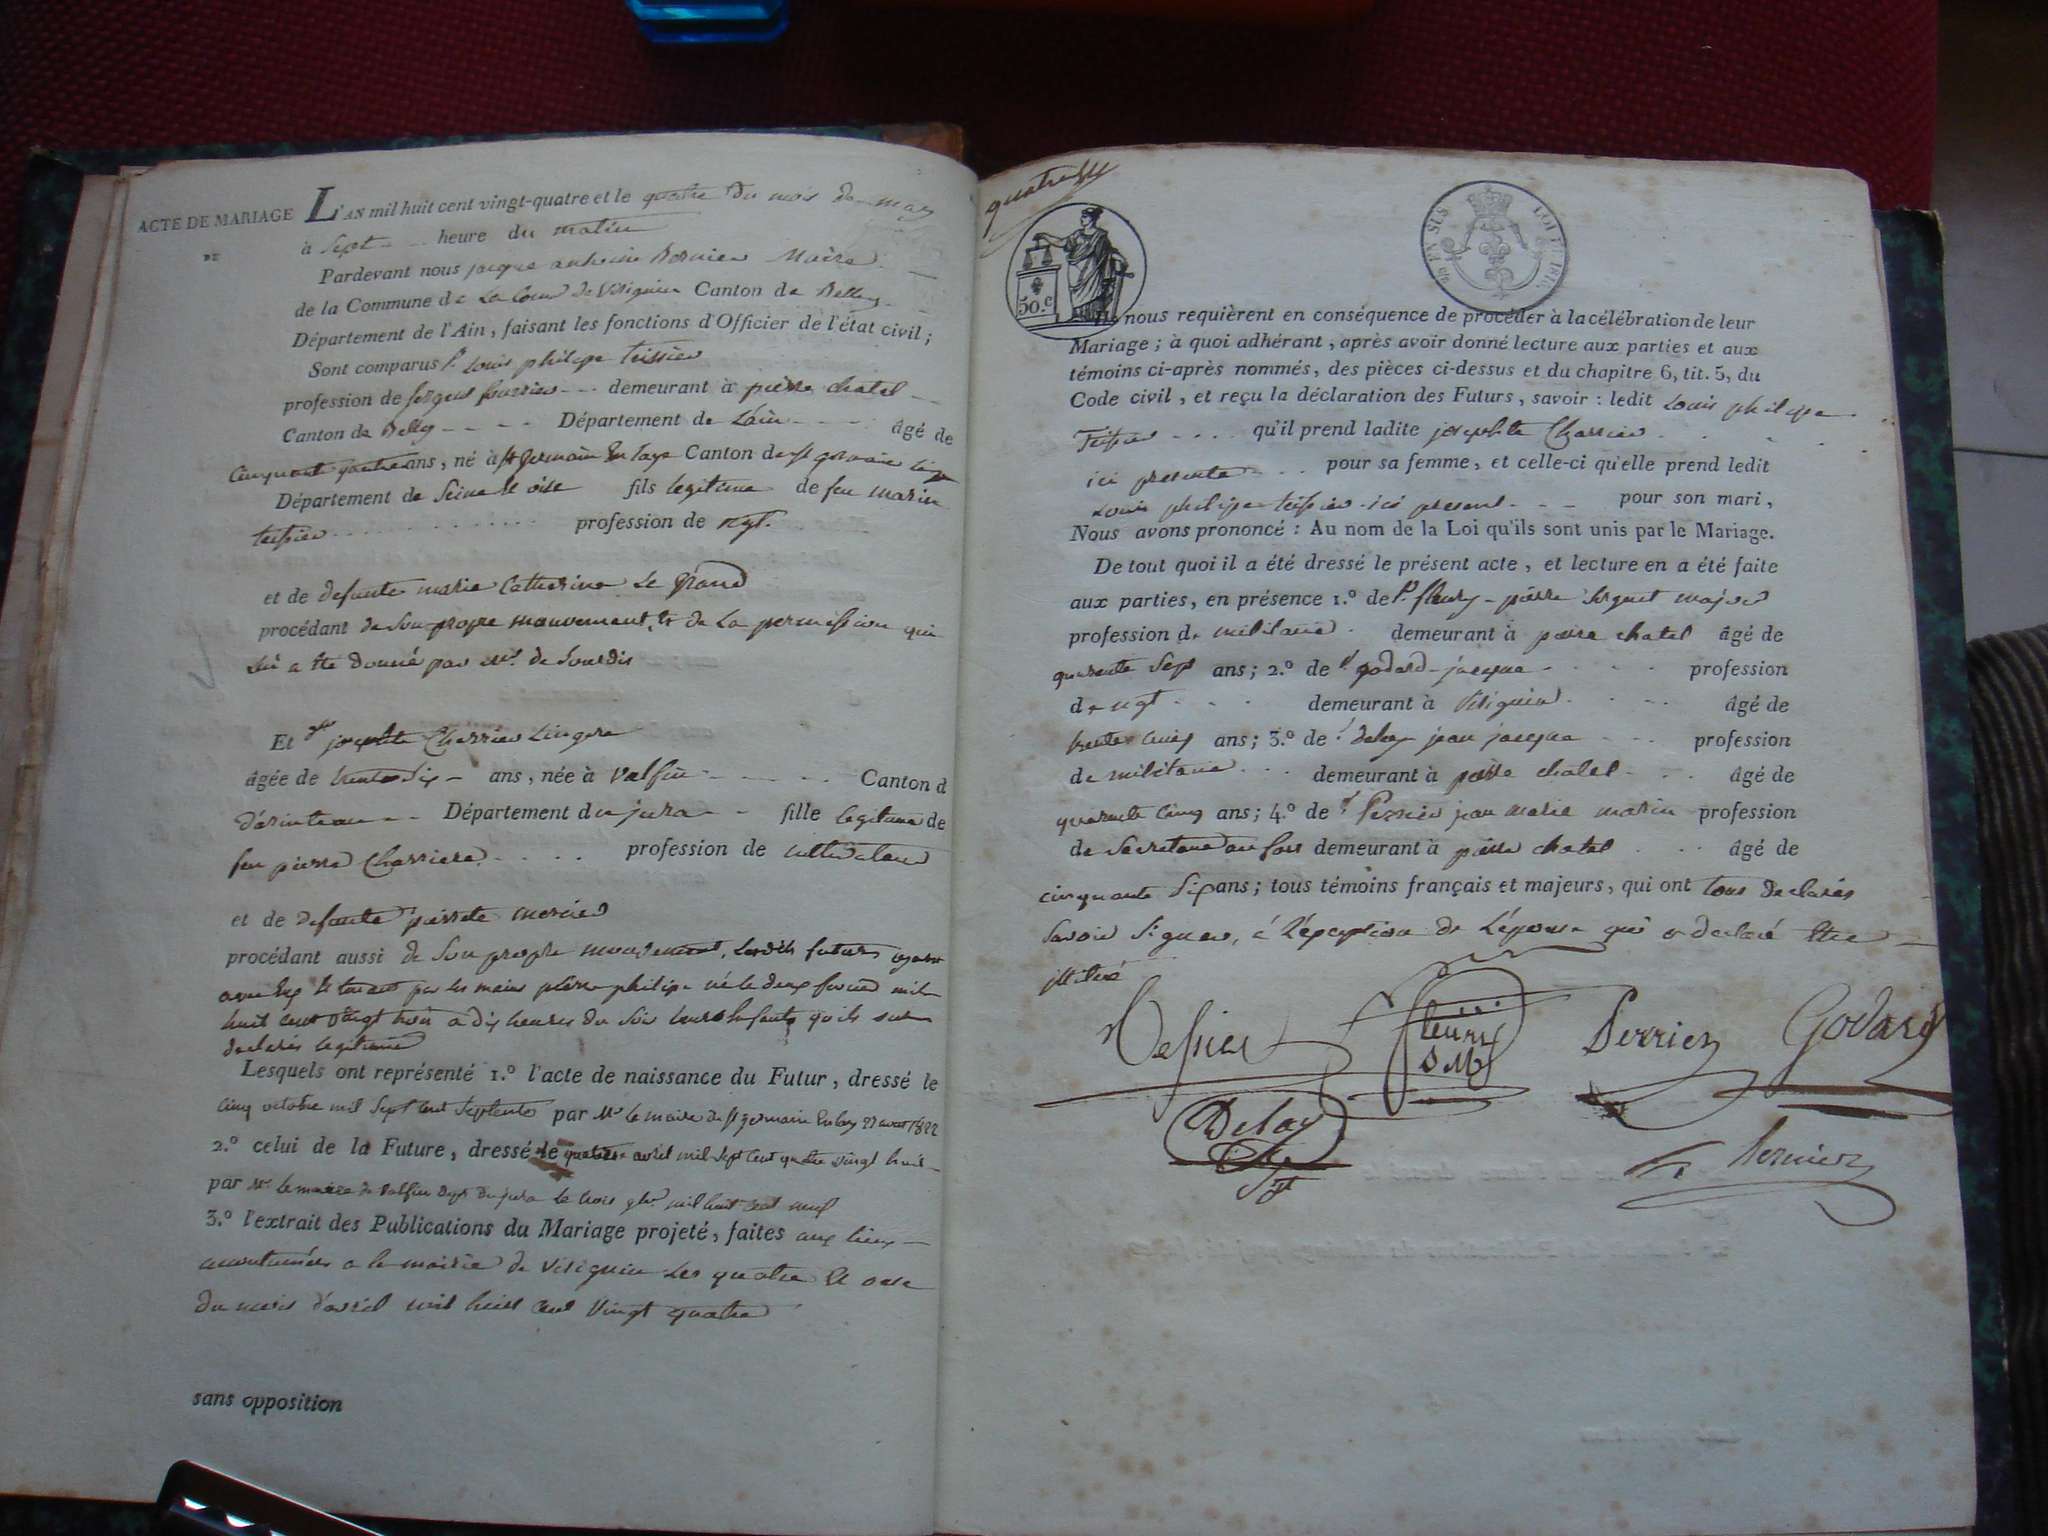 ACTE DE MARIAGE
DE
L'AN mil huit cent vingt-quatre et le quatre du mois de may
à Sept heure du matin
Pardevant nous jacque antoine Bernier Maire
de la Commune de La Cour de Virignin Canton de Belley
Département de l'Ain, faisant les fonctions d'Officier de l'état civil;
Sont comparus Sr Louis philipe teissier
profession de Sergent fourrier demeurant à pierre chatel
Canton de Belley Département de Lain âgé de
Cinquante quatre ans, né à St Germain En Laye Canton de St germain
Département de Seine et oise fils legitime de feu marin
teissier profession de
et de defunte marie Catherine Le Grand
procédant de Son propre mouvement, et de La permission qui
Lui a été donné par de Sourdis
Et dlle josephte Charrier Lingere
âgée de trente Six ans, née à Valfin Canton d
d'arinteau Département du jura fille legitime de
feu pierre Charriere profession de cultivateur
et de defunte pierrete mercier
procédant aussi de Son propre mouvement, Lesdits futurs ayant
avec Eux et tenant par les mains pierre philipe né le deux mil
huit cent vingt trois a dix heures du Soir leurs Enfants qu'ils ont
declarés legitime
Lesquels ont représenté 1.º l'acte de naissance du Futur, dressé le
Cinq octobre mil Sept Cent Septente par Mr le maire de St germain Enlay 27 1822
2.º celui de la Future, dressé le quatre avril mil Sept Cent quatre vingt huit
par Mr le maire de Valfin Dept du jura le trois mil huit cent neuf
3.º l'extrait des Publications du Mariage projeté, faites aux lieux
acoutumées a la mairie de Virignin Les quatre et onze
du mois d'avril mil huit cent Vingt quatre
sans opposition
50.c
EN SUS
LOI DE 1816
Ils nous requièrent en conséquence de procéder à la célébration de leur
Mariage; à quoi adhérant, après avoir donné lecture aux parties et aux
témoins ci-après nommés, des pièces ci-dessus et du chapitre 6, tit. 5, du
Code civil, et reçu la déclaration des Futurs, savoir: ledit Louis philipe
Teissier qu'il prend ladite josephte Charrier
ici presente pour sa femme, et celle-ci qu'elle prend ledit
Louis philipe teissier ici present pour son mari,
Nous avons prononcé: Au nom de la Loi qu'ils sont unis par le Mariage.
De tout quoi il a été dressé le présent acte, et lecture en a été faite
aux parties, en présence 1.º de Sr fleury pierre Sergent major
profession de militaire demeurant à pierre chatel âgé de
quarente Sept ans; 2.º de Sr godard jacque profession
de demeurant à Virignin âgé de
trente Cinq ans; 3.º de Sr delay jean jacque profession
de militaire demeurant à pierre chatel âgé de
quarente Cinq ans; 4.º de Sr Perrier jean marie marin profession
de Secretaire au fort demeurant à pierre chatel âgé de
cinquante Six ans; tous témoins français et majeurs, qui ont tous declarés
Savoir Signer, à L'éxception de L'épouse qui a declaré être
illitéré
Teissier fleury S M Perrier Godard
Delay Sgt
Bernier